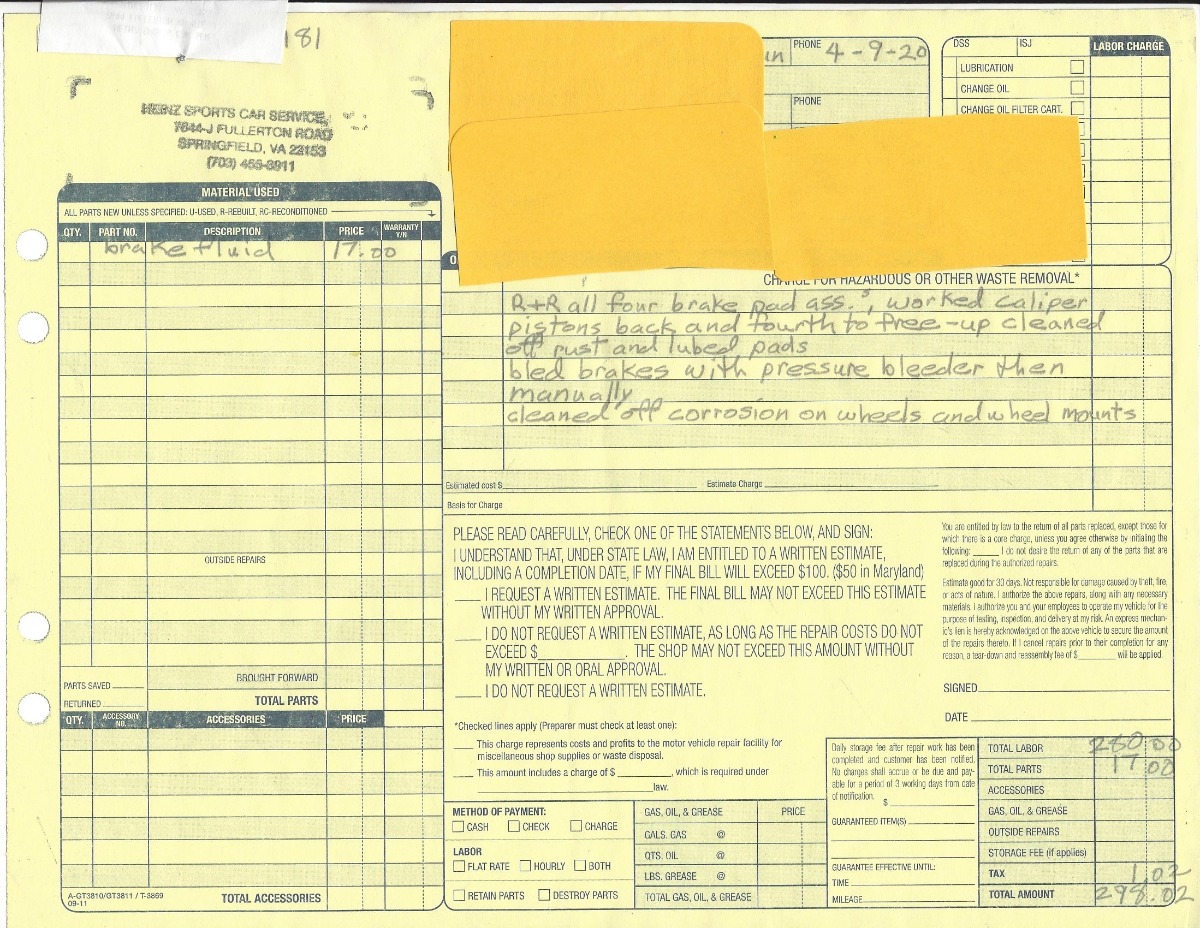 181
HEINZ SPORTS CAR SERVICE,
7644-J FULLERTON ROAD
SPRINGFIELD, VA 22153
(703) 455-3911
PHONE 4-9-20
PHONE
DSS ISJ LABOR CHARGE
LUBRICATION
CHANGE OIL
CHANGE OIL FILTER CART.
MATERIAL USED
ALL PARTS NEW UNLESS SPECIFIED: U-USED, R-REBUILT, RC-RECONDITIONED
QTY. PART NO. DESCRIPTION PRICE WARRANTY Y/N
brake fluid 17.00
OUTSIDE REPAIRS
PARTS SAVED
RETURNED
BROUGHT FORWARD
TOTAL PARTS
QTY. ACCESSORY NO. ACCESSORIES PRICE
A-GT3810/GT3811 / T-3869
09-11
TOTAL ACCESSORIES
CHARGE FOR HAZARDOUS OR OTHER WASTE REMOVAL*
R+R all four brake pad ass.s, worked caliper
pistons back and fourth to free-up cleaned
off rust and lubed pads
bled brakes with pressure bleeder then
manually
cleaned off corrosion on wheels and wheel mounts
Estimated cost $ Estimate Charge
Basis for Charge
PLEASE READ CAREFULLY, CHECK ONE OF THE STATEMENTS BELOW, AND SIGN:
I UNDERSTAND THAT, UNDER STATE LAW, I AM ENTITLED TO A WRITTEN ESTIMATE,
INCLUDING A COMPLETION DATE, IF MY FINAL BILL WILL EXCEED $100. ($50 in Maryland)
I REQUEST A WRITTEN ESTIMATE. THE FINAL BILL MAY NOT EXCEED THIS ESTIMATE
WITHOUT MY WRITTEN APPROVAL.
I DO NOT REQUEST A WRITTEN ESTIMATE, AS LONG AS THE REPAIR COSTS DO NOT
EXCEED $ . THE SHOP MAY NOT EXCEED THIS AMOUNT WITHOUT
MY WRITTEN OR ORAL APPROVAL.
I DO NOT REQUEST A WRITTEN ESTIMATE.
*Checked lines apply (Preparer must check at least one):
This charge represents costs and profits to the motor vehicle repair facility for
miscellaneous shop supplies or waste disposal.
This amount includes a charge of $ , which is required under
law.
You are entitled by law to the return of all parts replaced, except those for
which there is a core charge, unless you agree otherwise by initialing the
following: I do not desire the return of any of the parts that are
replaced during the authorized repairs.
Estimate good for 30 days. Not responsible for damage caused by theft, fire,
or acts of nature. I authorize the above repairs, along with any necessary
materials. I authorize you and your employees to operate my vehicle for the
purpose of testing, inspection, and delivery at my risk. An express mechan-
ic's lien is hereby acknowledged on the above vehicle to secure the amount
of the repairs thereto. If I cancel repairs prior to their completion for any
reason, a tear-down and reassembly fee of $ will be applied.
SIGNED
DATE
METHOD OF PAYMENT:
CASH CHECK CHARGE
LABOR
FLAT RATE HOURLY BOTH
RETAIN PARTS DESTROY PARTS
GAS, OIL, & GREASE PRICE
GALS. GAS @
QTS. OIL @
LBS. GREASE @
TOTAL GAS, OIL, & GREASE
Daily storage fee after repair work has been
completed and customer has been notified.
No charges shall accrue or be due and pay-
able for a period of 3 working days from date
of notification.
$
GUARANTEED ITEM(S)
GUARANTEE EFFECTIVE UNTIL:
TIME
MILEAGE
TOTAL LABOR 280.00
TOTAL PARTS 17 00
ACCESSORIES
GAS, OIL, & GREASE
OUTSIDE REPAIRS
STORAGE FEE (if applies)
TAX 1.02
TOTAL AMOUNT 298.02